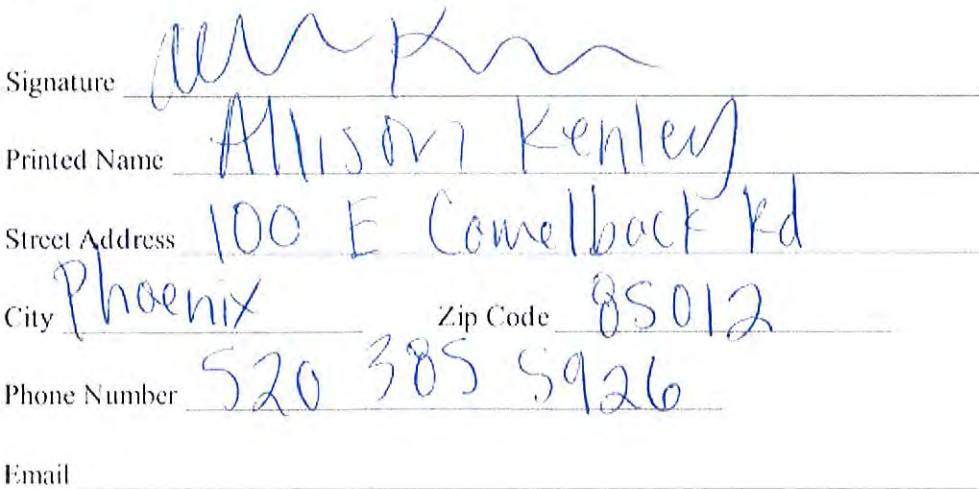 Signature
Printed Name Allison Kenley
Street Address 100 E Camelback Rd
City Phoenix Zip Code 85012
Phone Number 520 385 5926
Email